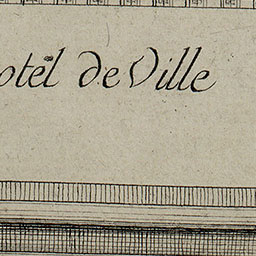 otel de Ville